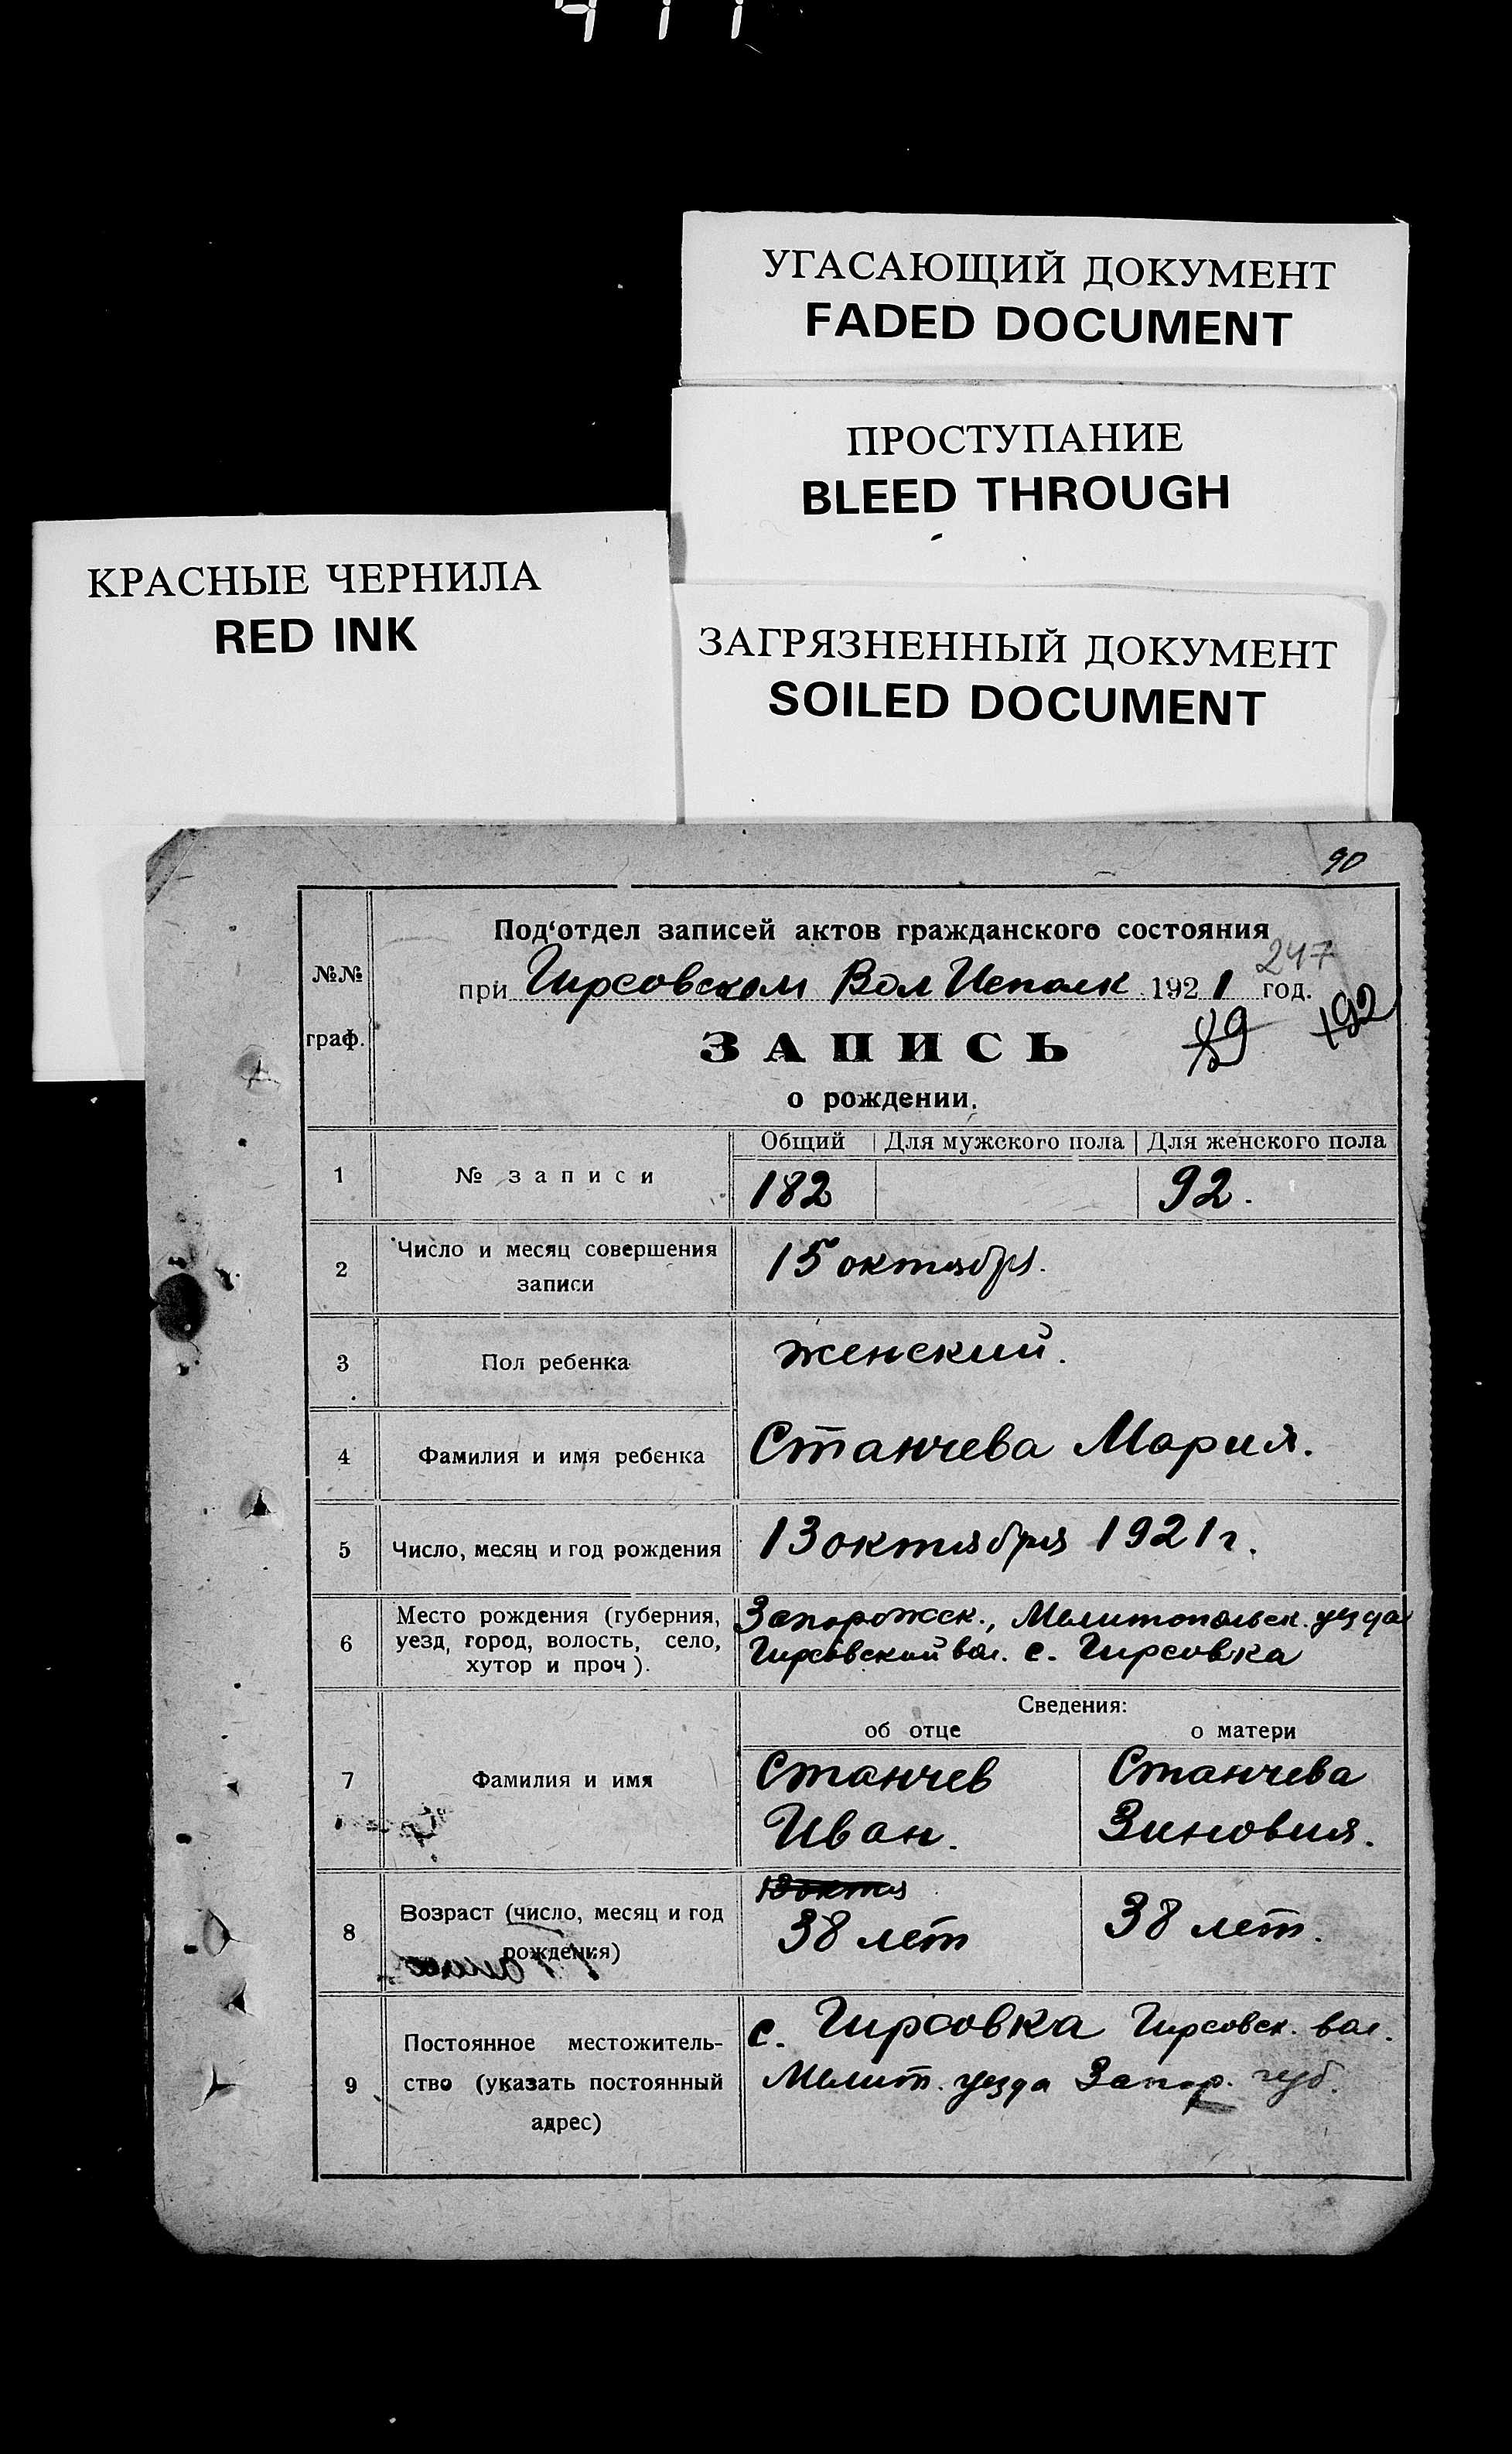 УГАСАЮЩИЙ ДОКУМЕНТ
FADED DOCUMENT
ПРОСТУПАНИЕ
BLEED THROUGH
КРАСНЫЕ ЧЕРНИЛА
RED INK
ЗАГРЯЗНЕННЫЙ ДОКУМЕНТ
SOILED DOCUMENT
90
№№
граф.
Под'отдел записей актов гражданского состояния
247
при Гирсовском Вол Исполк 1921 год.
ЗАПИСЬ
89 192
о рождении.
Общий Для мужского пола Для женского пола
1 № записи 182 92.
2 Число и месяц совершения
записи
15 октября.
3 Пол ребенка женский.
4 Фамилия и имя ребенка Станчева Мария.
5 Число, месяц и год рождения 13 октября 1921 г.
6 Место рождения (губерния,
уезд, город, волость, село,
хутор и проч).
Запорожск., Мелитопольск. уезда
Гирсовский вол. с. Гирсовка
Сведения:
об отце о матери
7 Фамилия и имя
Станчев Станчева
Иван. Зиновия.
8 Возраст (число, месяц и год
рождения)
13 октя
38 лет 38 лет.
9 Постоянное местожитель-
ство (указать постоянный
адрес)
с. Гирсовка Гирсовск. вол.
Мелит. уезда Запор. губ.